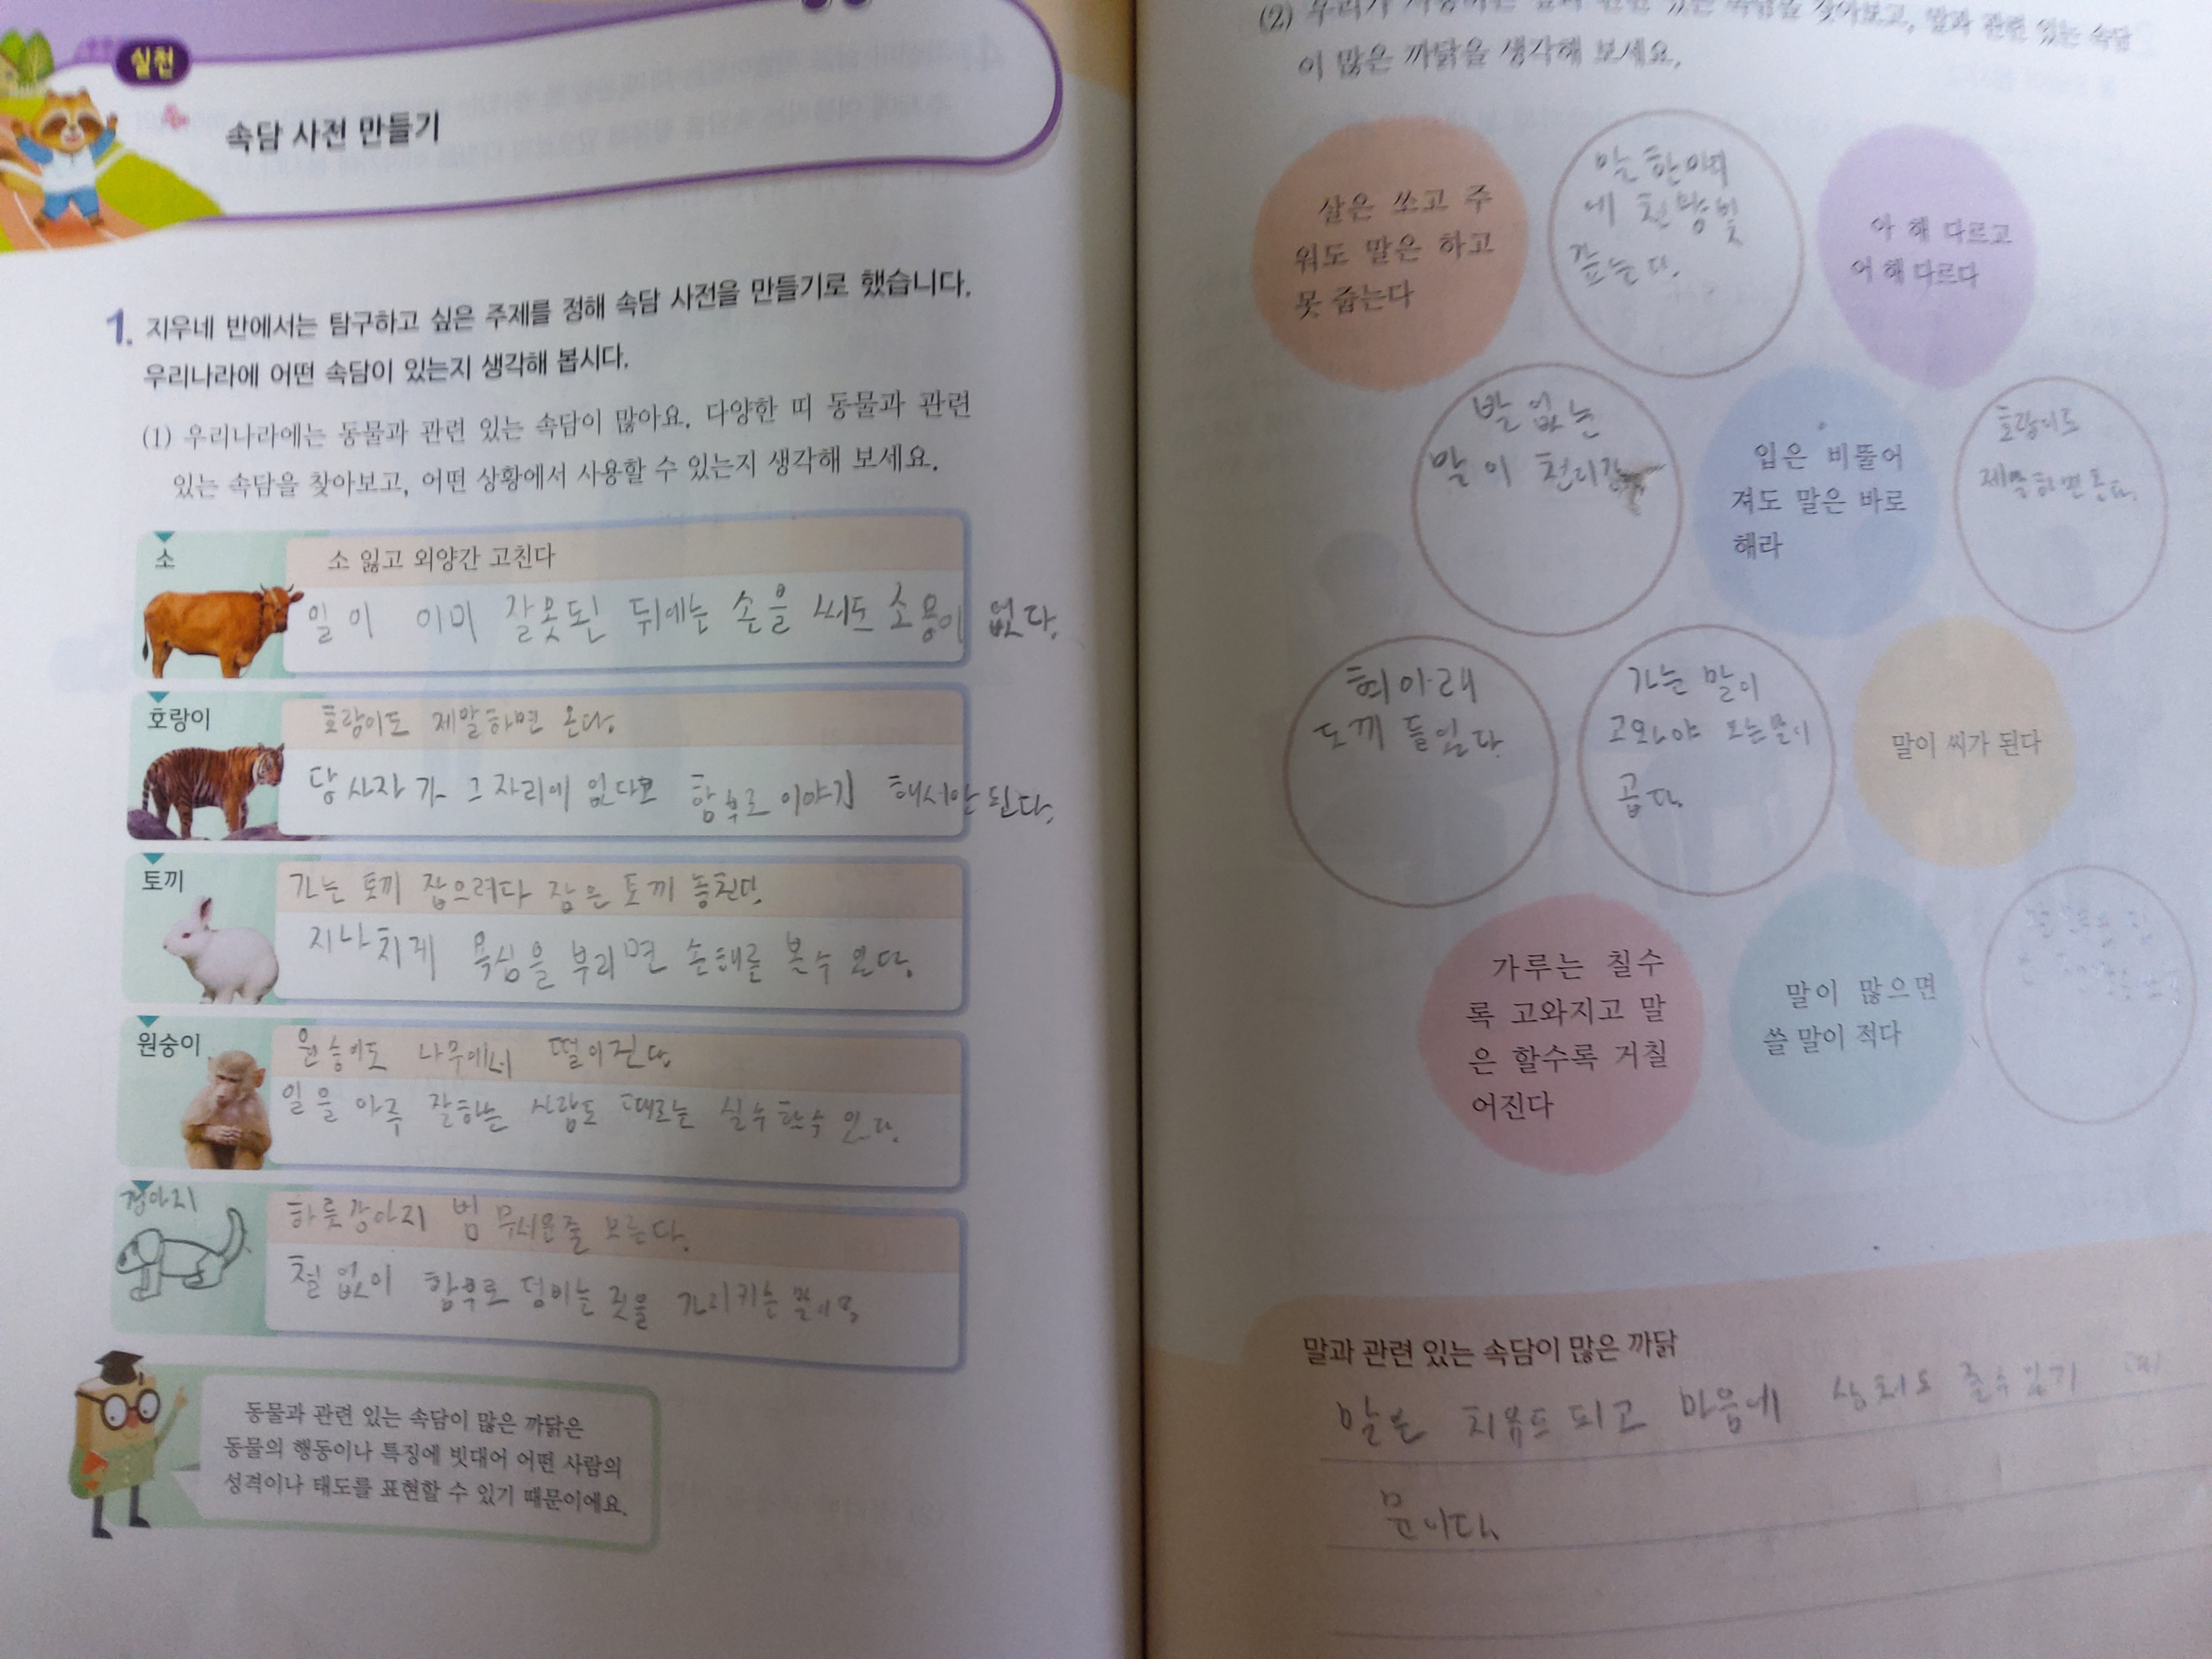 실천
속담 사전 만들기
1. 지우네 반에서는 탐구하고 싶은 주제를 정해 속담 사전을 만들기로 했습니다.
우리나라에 어떤 속담이 있는지 생각해 봅시다.
(1) 우리나라에는 동물과 관련 있는 속담이 많아요. 다양한 띠 동물과 관련
있는 속담을 찾아보고, 어떤 상황에서 사용할 수 있는지 생각해 보세요.
소
소 잃고 외양간 고친다
일이 이미 잘못된 뒤에는 손을 써도 소용이 없다.
호랑이
호랑이도 제말하면 온다.
당사자가 그 자리에 없다고 함부로 이야기 해서안된다.
토끼
가는 토끼 잡으려다 잡은 토끼 놓친다.
지나치게 욕심을 부리면 손해를 볼수 있다.
원숭이
원숭이도 나무에서 떨어진다.
일을 아주 잘하는 사람도 때로는 실수할수 있다.
강아지
하룻강아지 범 무서운줄 모른다.
철없이 함부로 덤비는 짓을 가리키는 말이다.
동물과 관련 있는 속담이 많은 까닭은
동물의 행동이나 특징에 빗대어 어떤 사람의
성격이나 태도를 표현할 수 있기 때문이에요.
(2) 우리가 있는 속담을 찾아보고, 말과 관련 있는 속담
이 많은 까닭을 생각해 보세요.
살은 쏘고 주
워도 말은 하고
못 줍는다
말 한마디
에 천냥빚
갚는다.
아 해 다르고
어 해 다르다
발 없는
말이 천리간다
입은 비뚤어
져도 말은 바로
해라
호랑이도
제말하면 온다.
혀아래
도끼 들었다.
가는 말이
고와야 오는말이
곱다.
말이 씨가 된다
가루는 칠수
록 고와지고 말
은 할수록 거칠
어진다
말이 많으면
쓸 말이 적다
말과 관련 있는 속담이 많은 까닭
말은 되고 마음에 상처도 줄수있기 때
문이다.